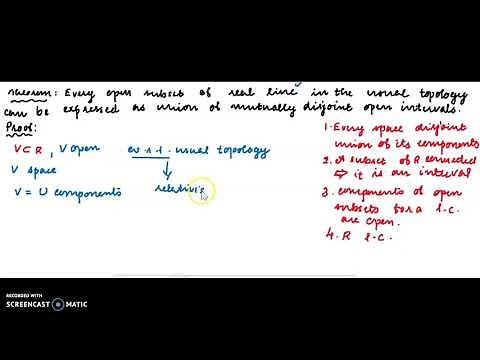 Theorem: Every open subset of real line in the usual topology
can be expressed as union of mutually disjoint open intervals.
Proof:
V⊂R, V open w.r.t. usual topology
V space
V = ∪ components
relativis
1. Every space disjoint
union of its components
2. A subset of R connected
⇒ it is an interval
3. components of open
subsets for a l.c.
are open.
4. R l.c.
RECORDED WITH
SCREENCAST MATIC